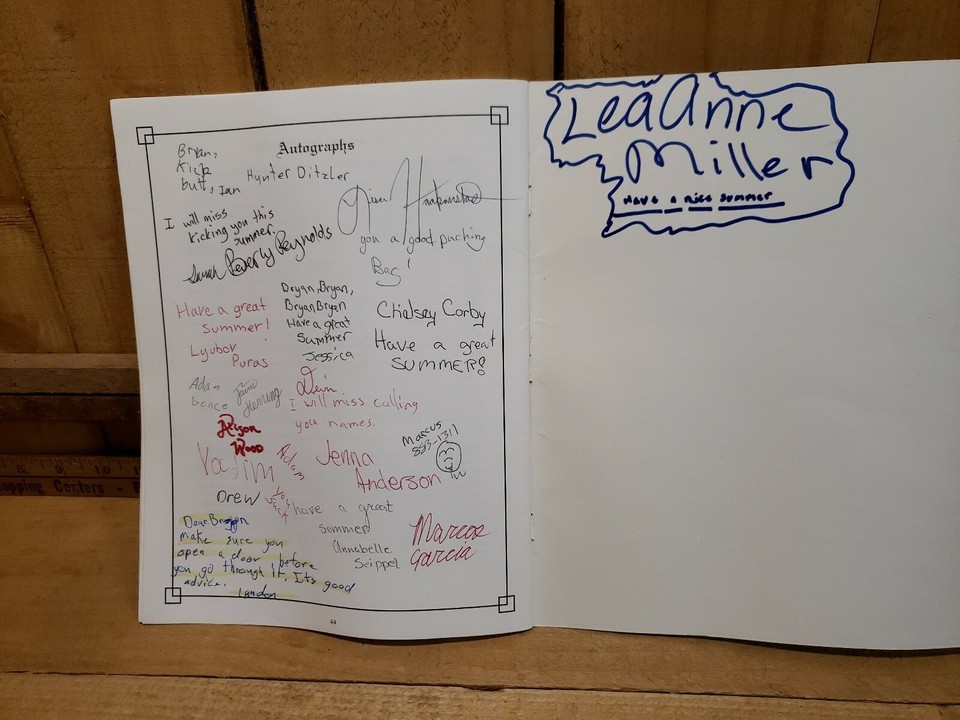 Autographs
Bryan,
Kick
butt, Ian
Hunter Ditzler
I will miss
kicking you this
summer.
Sarah
Beverly Reynolds
you a good puching
Bag!
Have a great
Summer!
Lyubov
Puras
Bryan, Bryan,
Bryan Bryan
Have a great
Summer
Jessica
Chelsey Corby
Have a great
SUMMER!
Adam
Jaime
Henning
I will miss calling
you names.
Alison
Wood
Vadim
Adam
Jenna
Anderson
Marcus
853-1317
Drew
have a great
summer
Annabelle
Seippel
Marcos
Garcia
Dear Bryan
make sure you
open a door before
you go through it. Its good
advice.
Landon
44
LeaAnne
Miller
Have a nice summer
8 9 10
opping Centers -